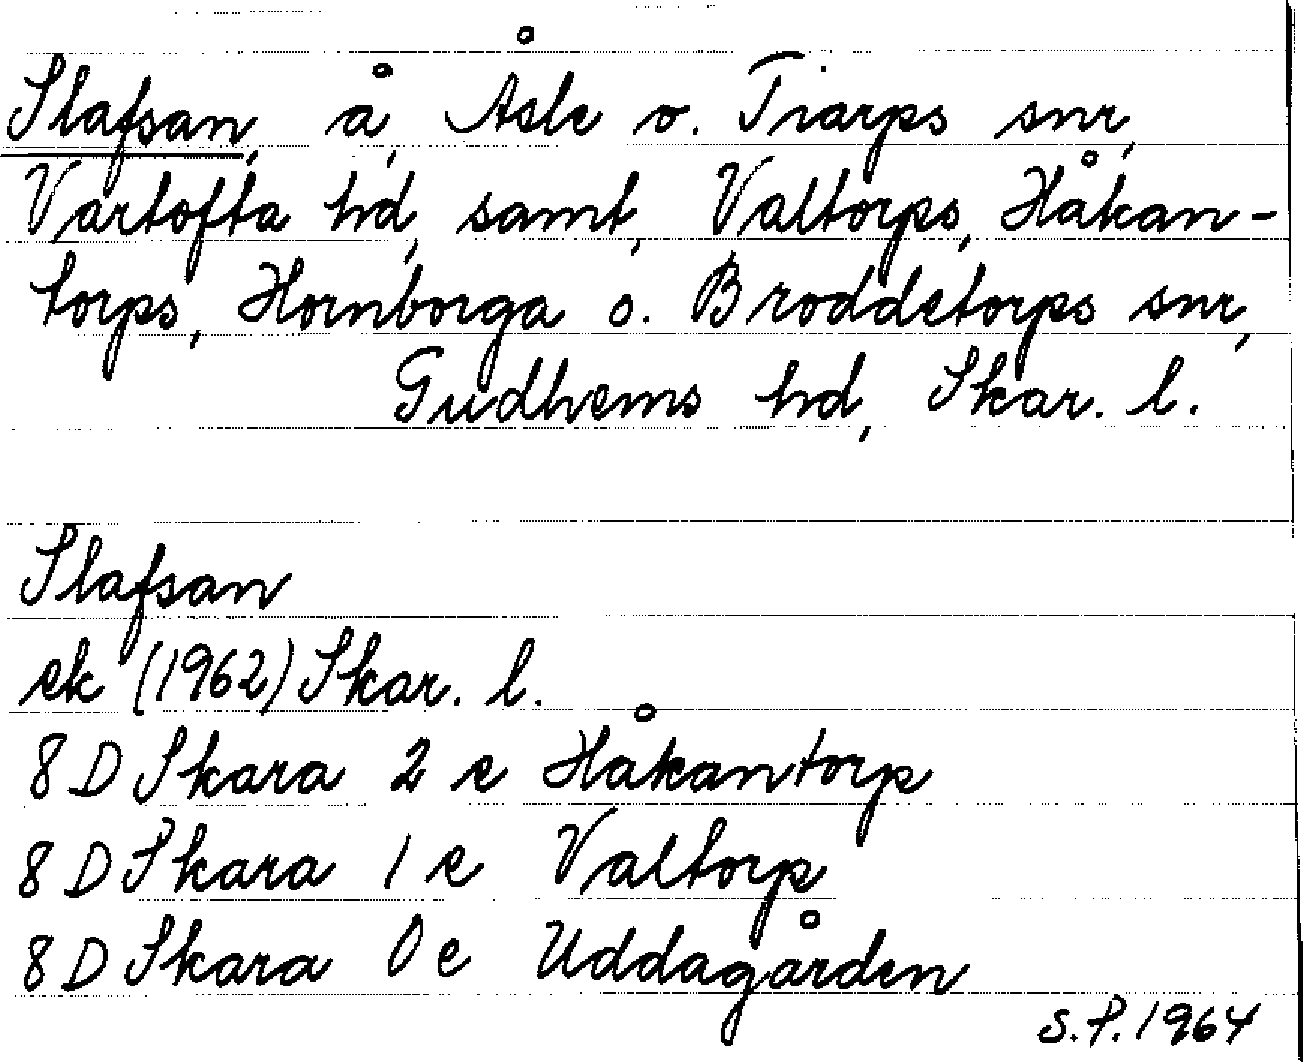 Slafsan, å, Åsle o. Tiarps snr,
Vartofta hd, samt, Valtorps, Håkan-
torps, Hornborga o. Broddetorps snr,
Gudhems hd, Skar. l.
Slafsan
ek (1962) Skar. l.
8 D Skara 2 e Håkantorp
8 D Skara 1 e Valtorp
8 D Skara 0 e Uddagården
S.P. 1964